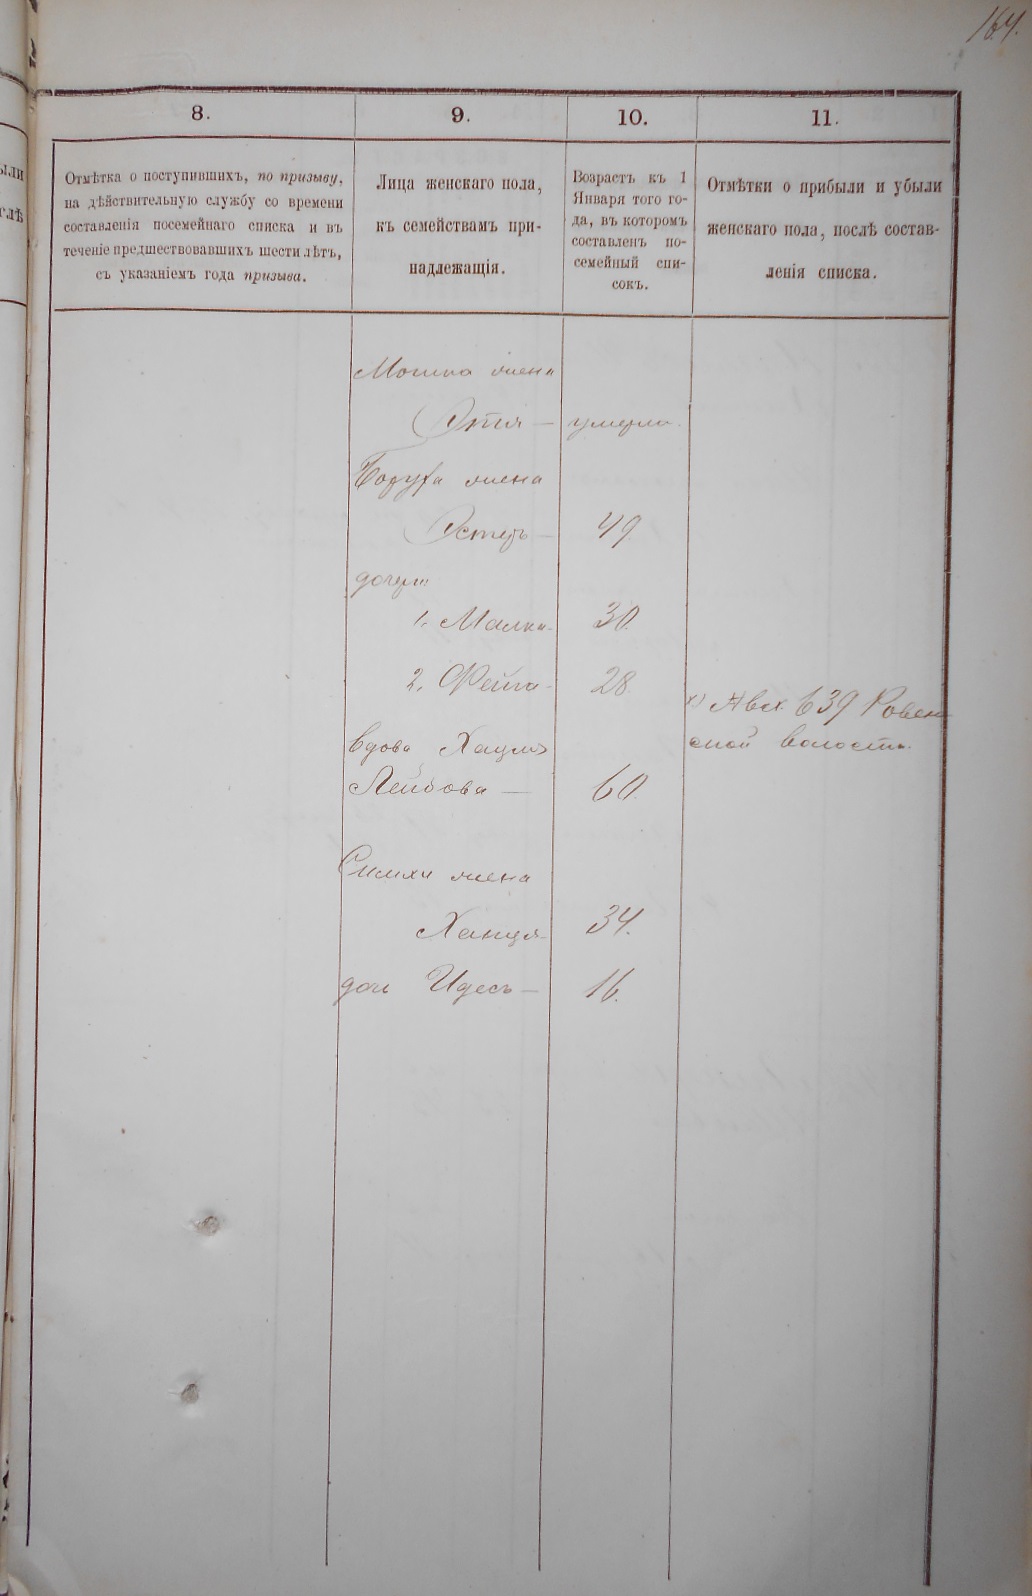 164.
8.
9.
10.
11.
Отмѣтка о поступившихъ, по призыву,
на дѣйствительную службу со времени
составленія посемейнаго списка и въ
теченіе предшествовавшихъ шести лѣтъ,
съ указаніемъ года призыва.
Лица женскаго пола,
къ семействамъ при-
надлежащія.
Возрастъ къ 1
Января того го-
да, въ которомъ
составленъ по-
семейный спи-
сокъ.
Отмѣтки о прибыли и убыли
женскаго пола, послѣ состав-
ленія списка.
ыли
слѣ
Мошка жена
Этя — умерла.
Боруха жена
Эстеръ — 49
дочери:
1. Малка — 30.
2. Фейга — 28.
639 Ровен
ской волости.
вдова
Лейбова — 60.
Симхи жена
Ханця — 34.
дочь Идесь — 16.